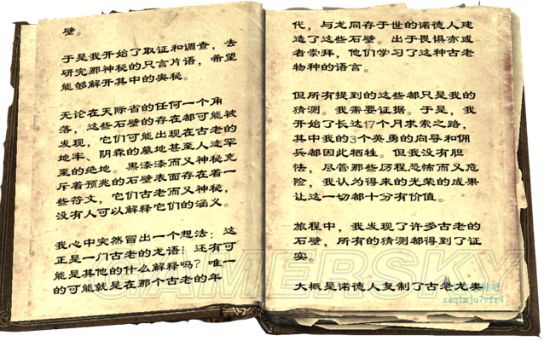 壁。
于是我开始了取证和调查，去
研究那神秘的只言片语，希望
能够解开其中的奥秘。
无论在天际省的任何一个角
落，这些石壁的存在都可能被
发现，它们可能出现在古老的
地牢、阴森的墓地甚至人迹罕
至的绝地。黑漆漆而又神秘充
斥着预兆的石壁表面存在着一
些符文，它们古老而又神秘，
没有人可以解释它们的涵义。
我心中突然冒出一个想法：这
正是一门古老的龙语！还有可
能是其他的什么解释吗？唯一
的可能就是在那个古老的年
代，与龙同存于世的诺德人建
造了这些石壁。出于畏惧亦或
者崇拜，他们学习了这种古老
物种的语言。
但所有提到的这些都只是我的
猜测。我需要证据。于是，我
开始了长达17个月求索之路，
其中我的3个英勇的向导和佣
兵都因此牺牲。但我没有胆
怯，尽管那些历程恐怖而又危
险，我认为得来的光荣的成果
让这一切都十分有价值。
旅程中，我发现了许多古老的
石壁，所有的猜测都得到了证
实。
大概是诺德人复制了古老龙类
GAMERSKY
zaq1mju7vfr4